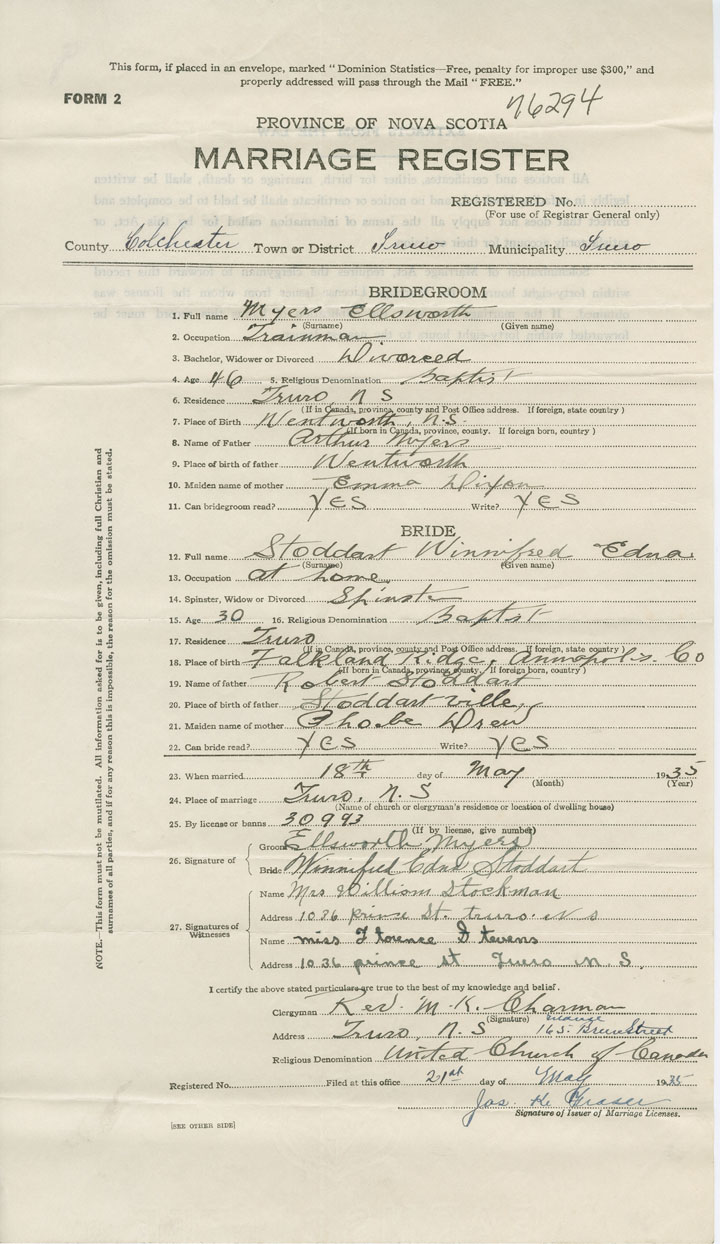 This form, if placed in an envelope, marked "Dominion Statistics—Free, penalty for improper use $300," and
properly addressed will pass through the Mail "FREE."
FORM 2
76294
PROVINCE OF NOVA SCOTIA
MARRIAGE REGISTER
REGISTERED No.
(For use of Registrar General only)
County Colchester Town or District Truro Municipality Truro
BRIDEGROOM
1. Full name Myers Ellsworth
(Surname) (Given name)
2. Occupation Trainman
3. Bachelor, Widower or Divorced Divorced
4. Age 46 5. Religious Denomination Baptist
6. Residence Truro, N S
(If in Canada, province, county and Post Office address. If foreign, state country)
7. Place of Birth Wentworth, N.S.
(If born in Canada, province, county. If foreign born, country)
8. Name of Father Arthur Myers
9. Place of birth of father Wentworth
10. Maiden name of mother Emma Dixon
11. Can bridegroom read? YES Write? YES
BRIDE
12. Full name Stoddart Winnifred Edna
(Surname) (Given name)
13. Occupation at home
14. Spinster, Widow or Divorced Spinster
15. Age 30 16. Religious Denomination Baptist
17. Residence Truro
(If in Canada, province, county and Post Office address. If foreign, state country)
18. Place of birth Falkland Ridge, Annapolis Co
(If born in Canada, province, county. If foreign born, country)
19. Name of father Robert Stoddart
20. Place of birth of father Stoddartville,
21. Maiden name of mother Phoebe Drew
22. Can bride read? YES Write? YES
23. When married 18th day of May 1935
(Month) (Year)
24. Place of marriage Truro, N.S
(Name of church or clergyman's residence or location of dwelling house)
25. By license or banns 30993
(If by license, give number)
26. Signature of
Groom Ellsworth Myers
Bride Winnifred Edna Stoddart
27. Signatures of Witnesses
Name Mrs William Stockman
Address 1036 prince St. truro. N S
Name miss Florence Stevens
Address 1036 prince st Truro N. S.
I certify the above stated particulars are true to the best of my knowledge and belief.
Clergyman Rev. M. K. Charman
(Signature)
Address Truro, N.S 165
Religious Denomination United Church of Canada
Registered No. Filed at this office 21st day of May 1935
Jas. K. Fraser
Signature of Issuer of Marriage Licenses.
[SEE OTHER SIDE]
NOTE.—This form must not be mutilated. All information asked for is to be given, including full Christian and
surnames of all parties, and if for any reason this is impossible, the reason for the omission must be stated.